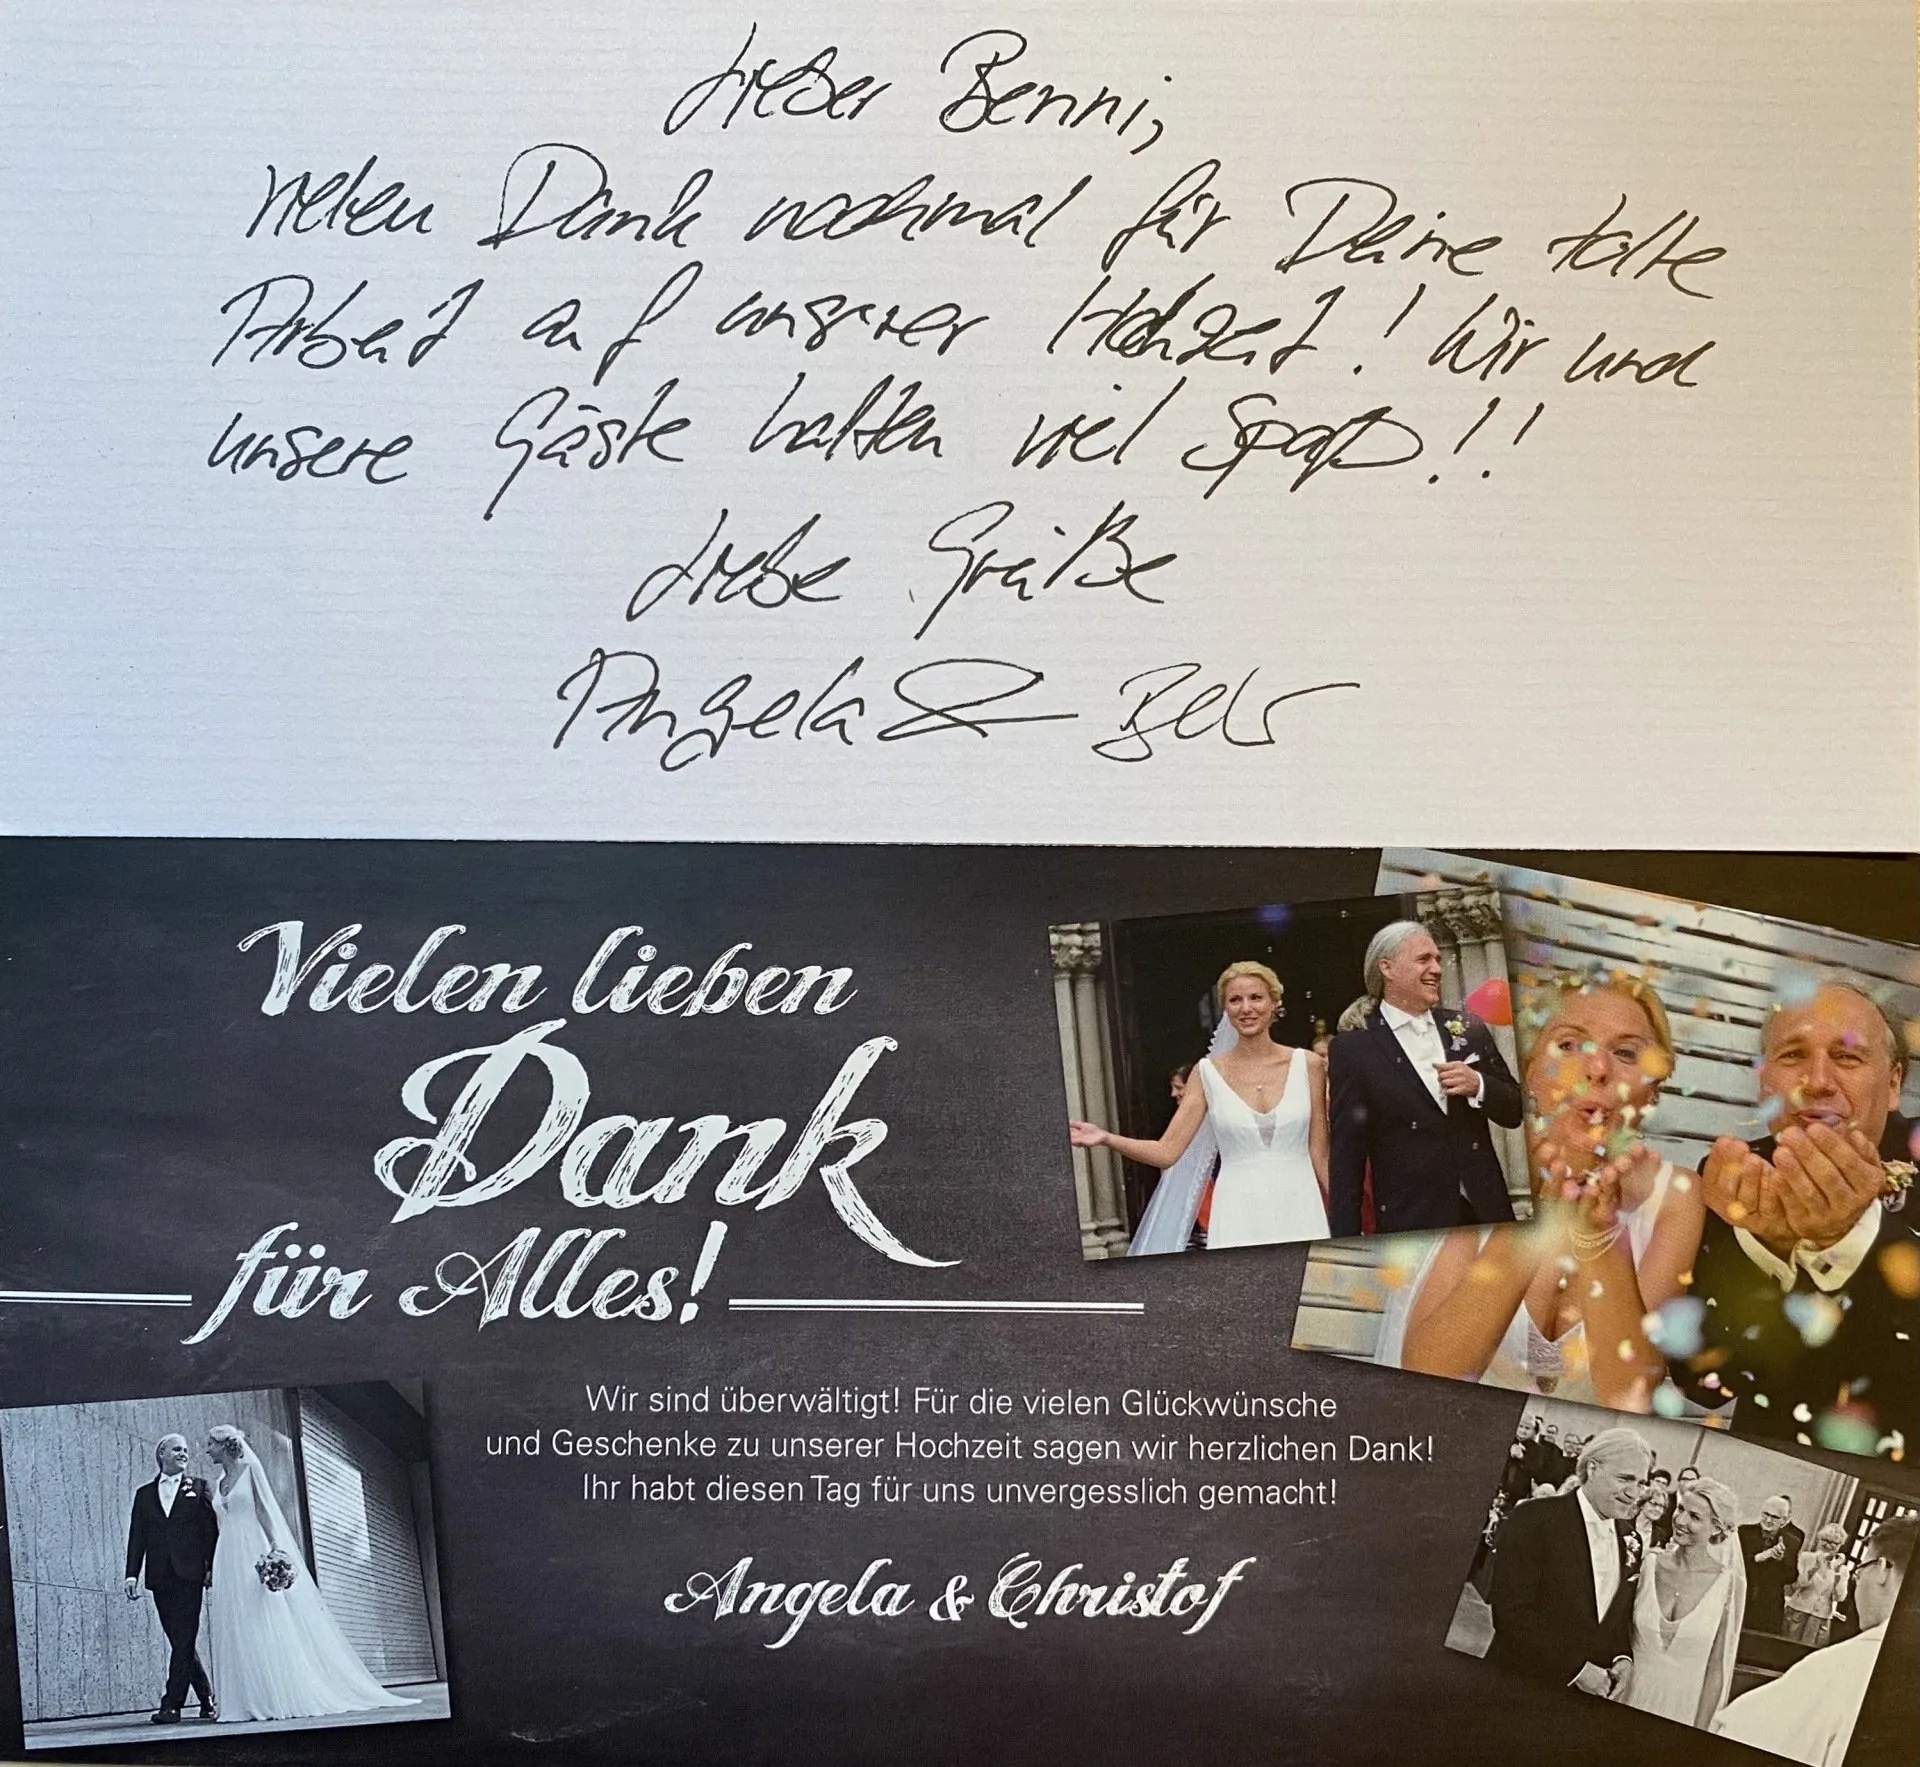 Lieber Benni,
vielen Dank nochmal für Deine tolle
Arbeit auf unserer Hochzeit! Wir und
unsere Gäste hatten viel Spaß!!
Liebe Grüße
Angela &
Vielen lieben
Dank
für Alles!
Wir sind überwältigt! Für die vielen Glückwünsche
und Geschenke zu unserer Hochzeit sagen wir herzlichen Dank!
Ihr habt diesen Tag für uns unvergesslich gemacht!
Angela & Christof